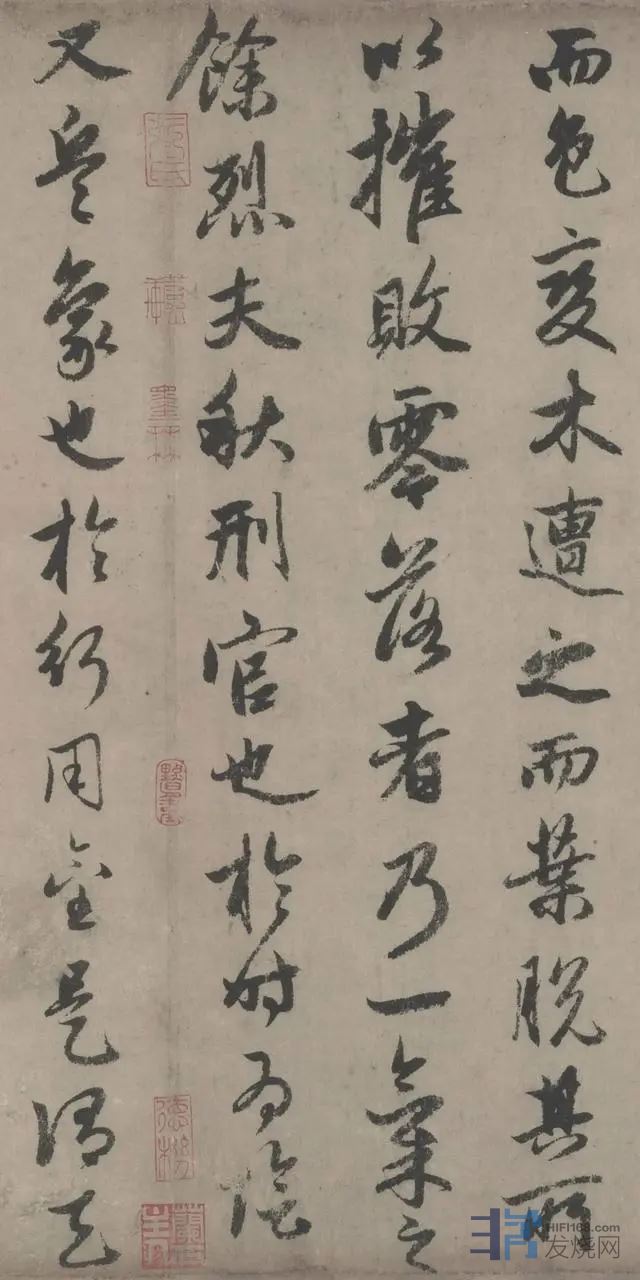 而色變木遭之而葉脫其所
以摧敗零落者乃一氣之
餘烈夫秋刑官也於時為陰
又兵象也於行用金是謂天
HIFI168.com
发烧网